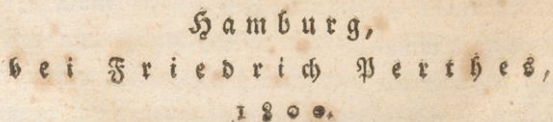 Hamburg,
bei Friedrich Perthes,
1800.